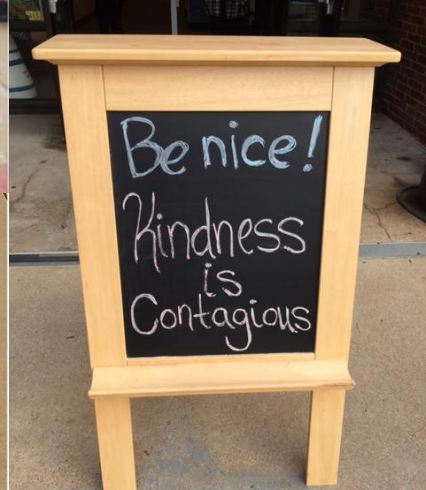 Be nice!
Kindness
is
Contagious